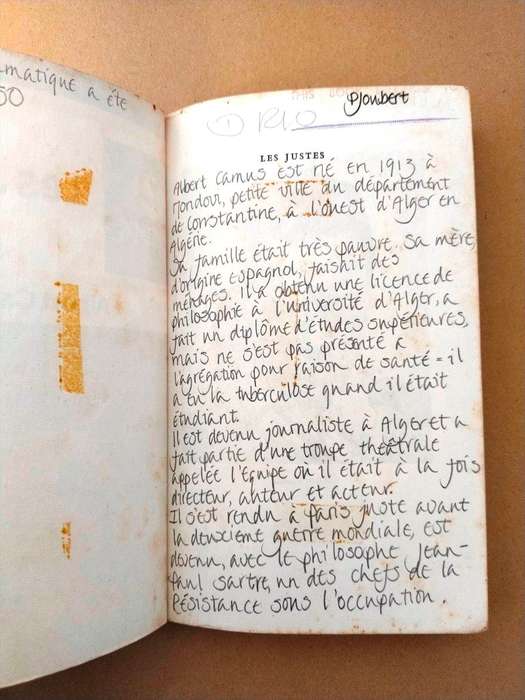 matique a été
50
PJoubert
LES JUSTES
Albert Camus est né en 1913 à
Mondovi, petite ville du département
de Constantine, à l'ouest d'Alger en
Algérie.
Sa famille était très pauvre. Sa mère,
d'origine espagnol, faisait des
ménages. Il a obtenu une licence de
philosophie à l'université d'Alger, a
fait un diplôme d'études supérieures,
mais ne s'est pas présenté à
l'agrégation pour raison de santé = il
a eu la tuberculose quand il était
étudiant.
Il est devenu journaliste à Alger et a
fait partie d'une troupe théâtrale
appelée l'Equipe où il était à la fois
directeur, auteur et acteur.
Il s'est rendu à Paris juste avant
la deuxième guerre mondiale, est
devenu, avec le philosophe Jean-
Paul Sartre, un des chefs de la
Résistance sous l'occupation.